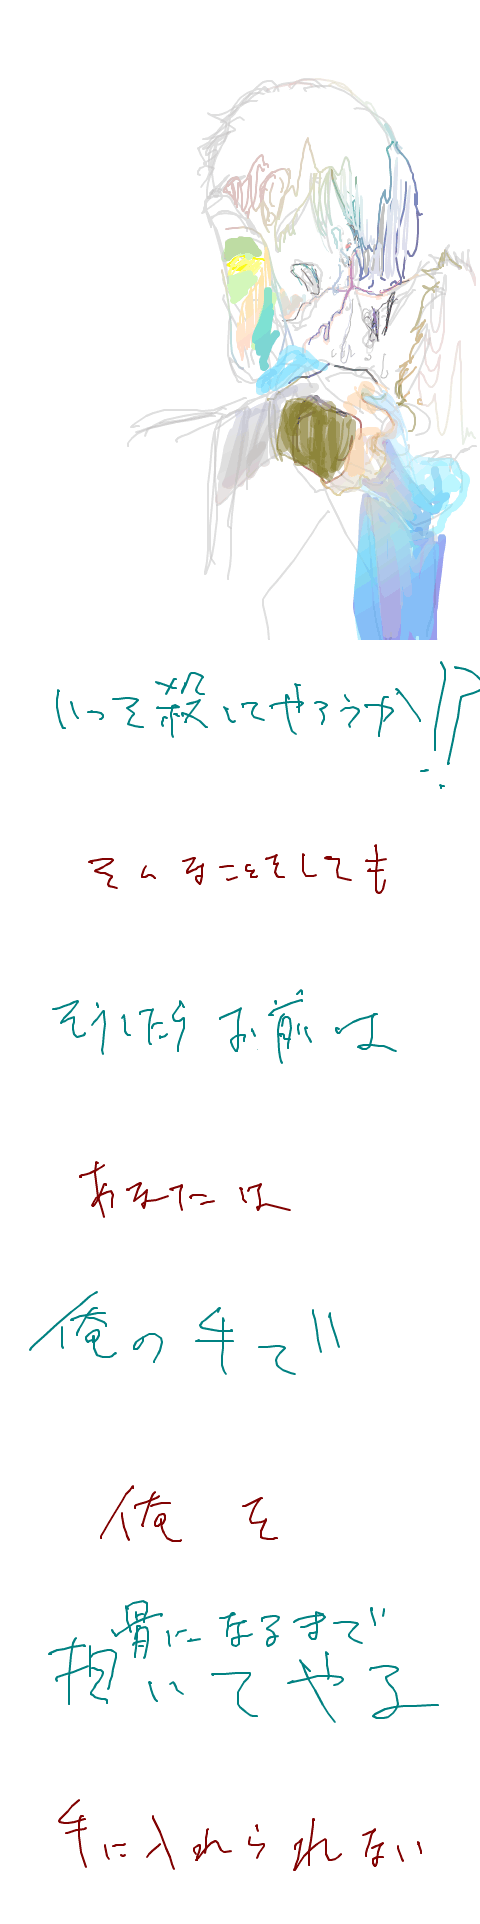 いっそ殺してやろうか!?
そんなことをしても
そうしたらお前は
あなたは
俺の手で
俺を
骨になるまで
抱いてやる
手に入れられない